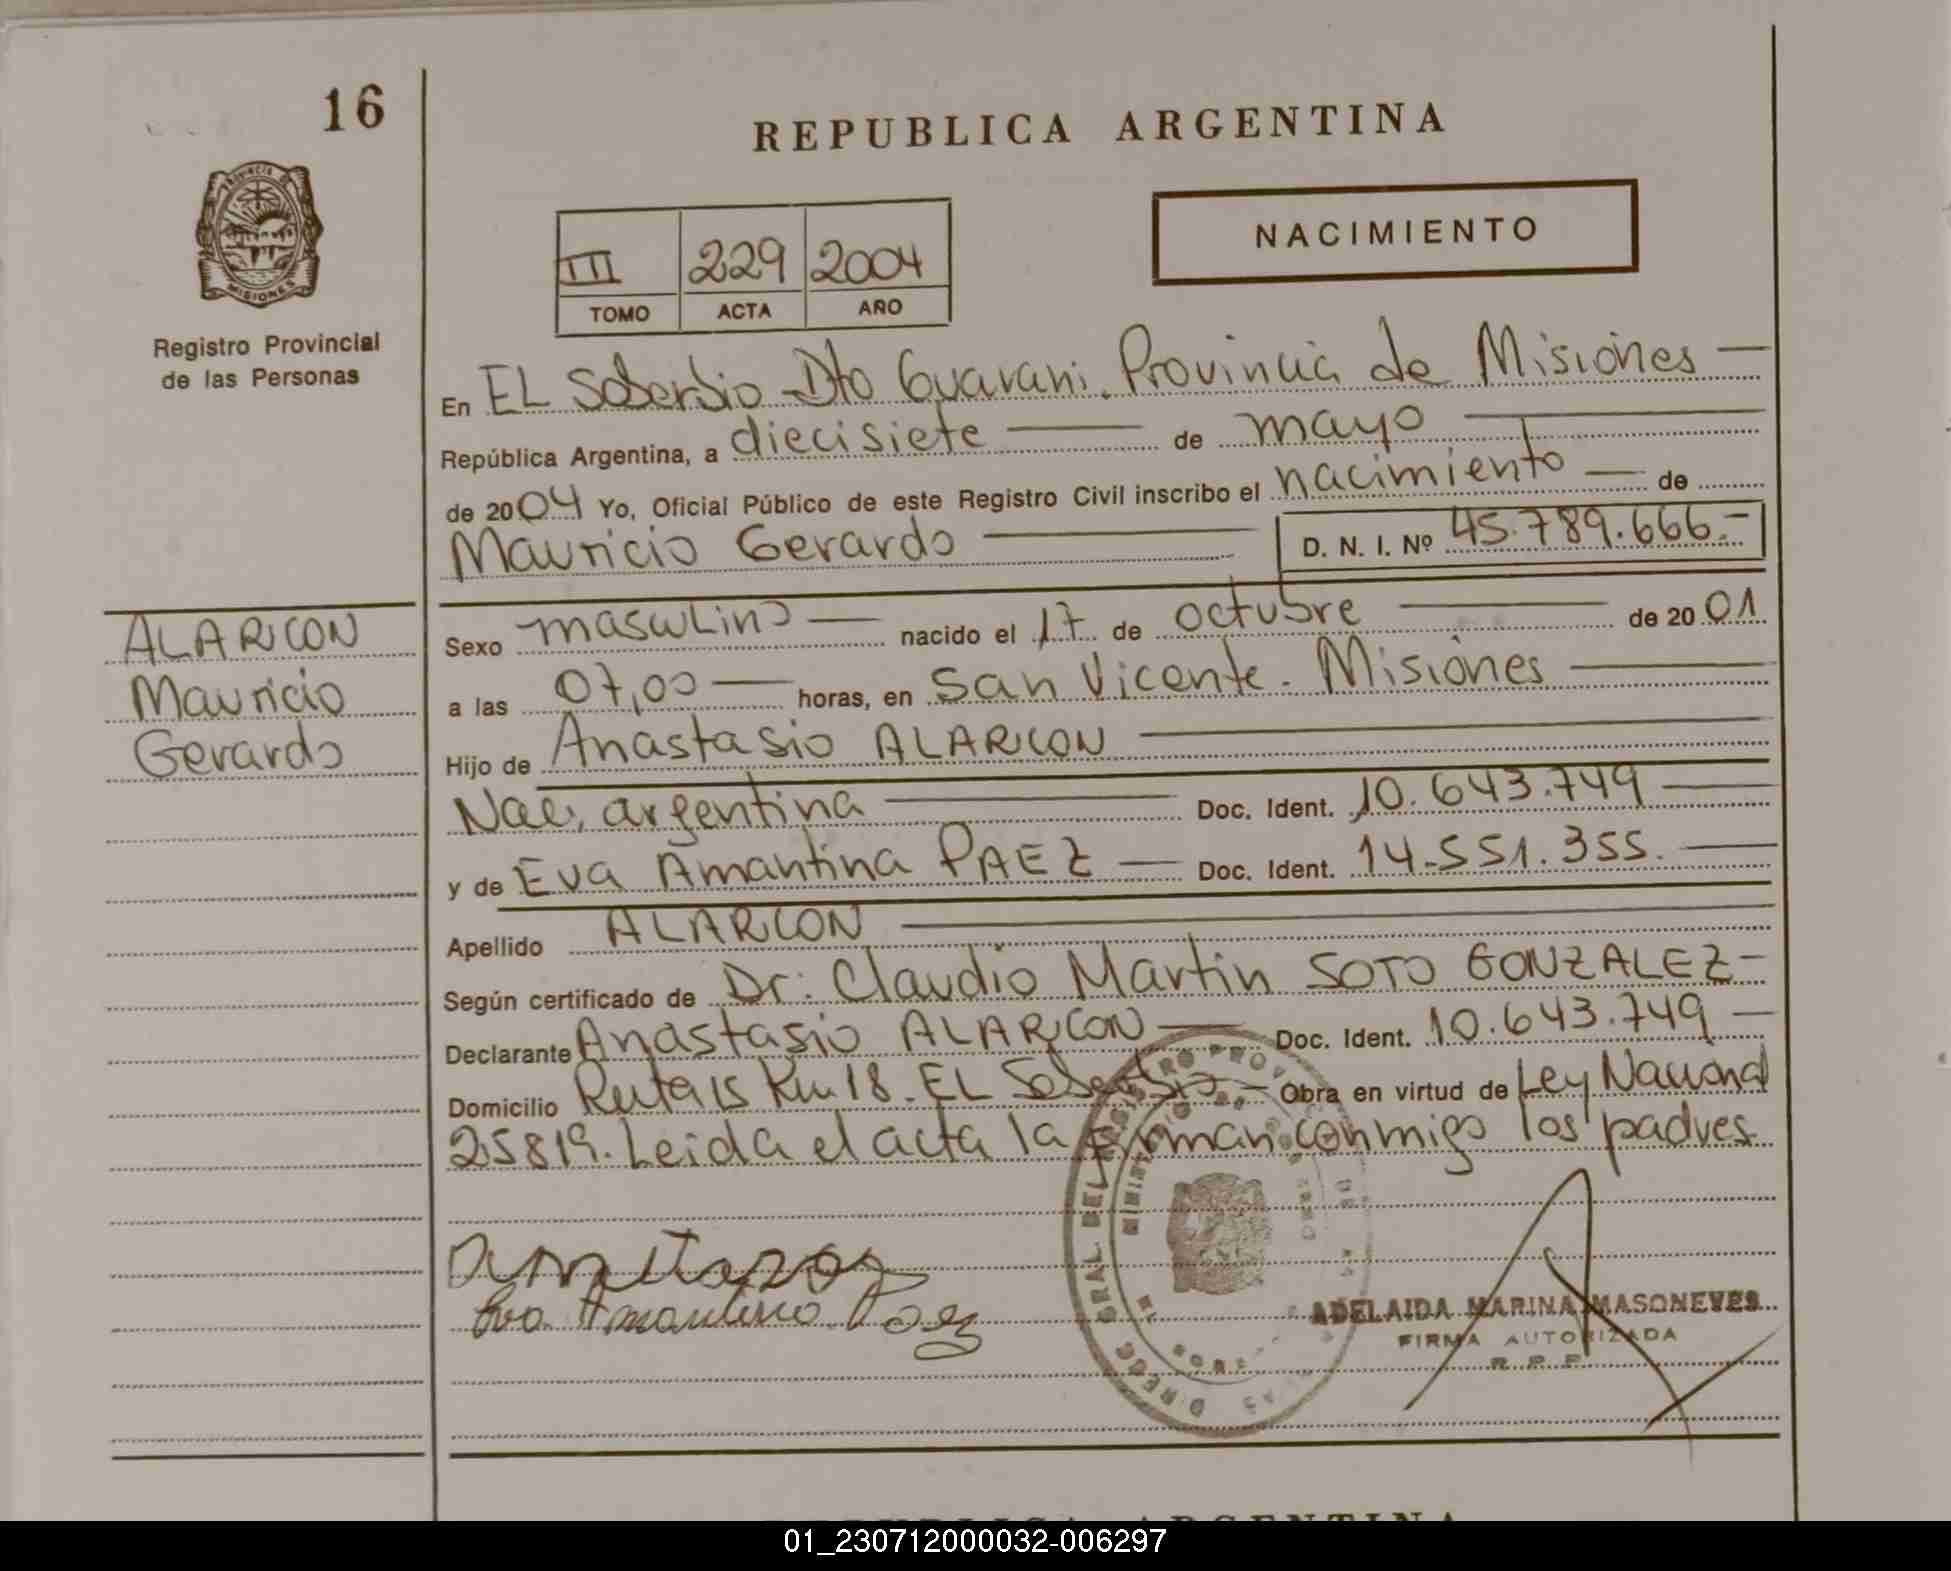 16
REPUBLICA ARGENTINA
NACIMIENTO
III 229 2004
TOMO ACTA AÑO
PROVINCIA DE
MISIONES
Registro Provincial
de las Personas
En EL Soberbio Dto Guarani. Provincia de Misiones
República Argentina, a diecisiete de mayo
de 2004 Yo, Oficial Público de este Registro Civil inscribo el nacimiento de
Mauricio Gerardo D. N. I. Nº 45.789.666.-
ALARCON
Mauricio
Gerardo
Sexo masculino nacido el 17 de octubre de 2001
a las 07,00 horas, en San Vicente. Misiones
Hijo de Anastasio ALARCON
Nac. argentina Doc. Ident. 10.643.749
y de Eva Amantina PAEZ Doc. Ident. 14.551.355.
Apellido ALARCON
Según certificado de Dr. Claudio Martin SOTO GONZALEZ-
Declarante Anastasio ALARCON Doc. Ident. 10.643.749
Domicilio Ruta 15 Km 18. EL Soberbio Obra en virtud de Ley Nacional
25819. Leida el acta la firman conmigo los padres
Eva Amantina Paez
ADELAIDA MARINA MASONEVES
FIRMA AUTORIZADA
R. P. P.
REPUBLICA ARGENTINA
01_230712000032-006297